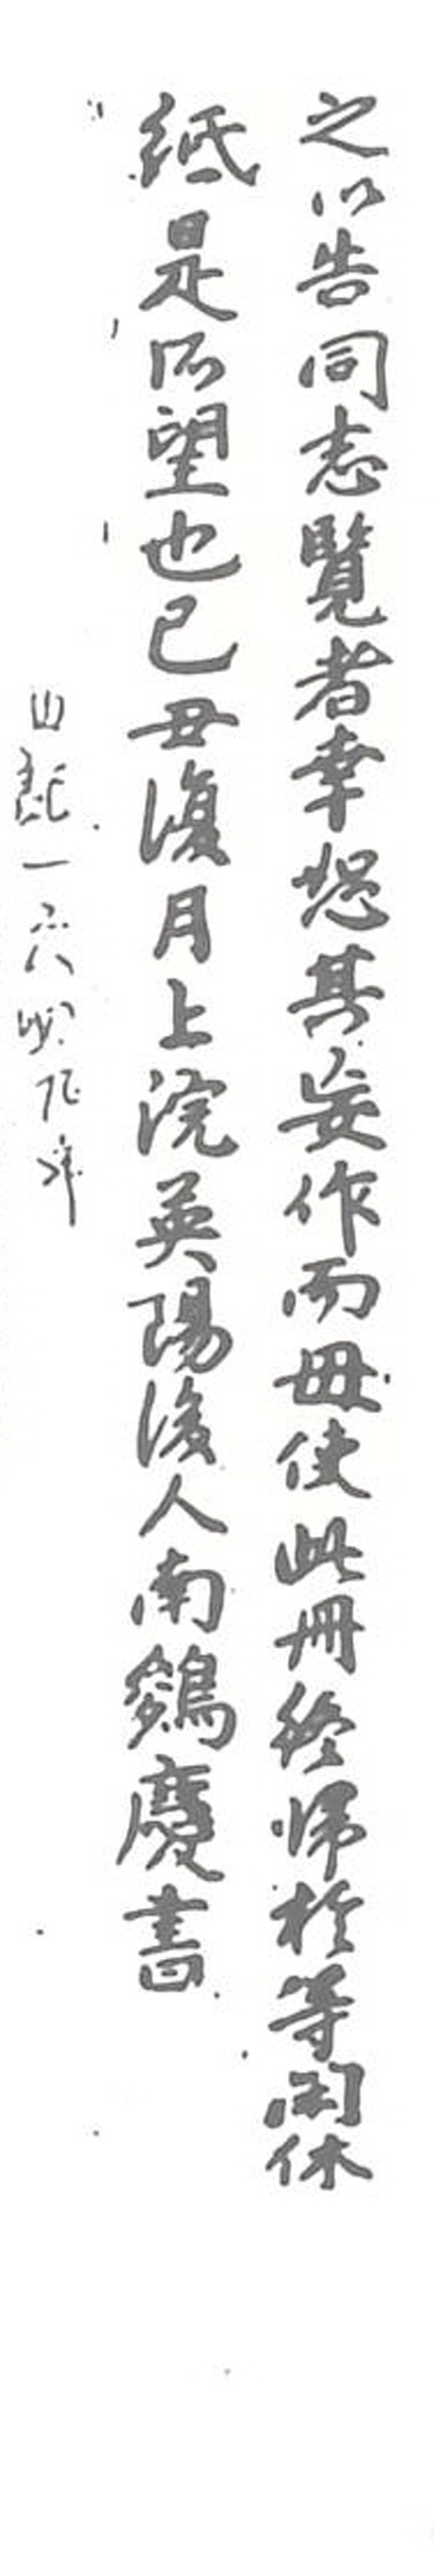 之以告同志覽者幸恕其妄作而毋使此冊終歸於等閑休
紙是所望也己丑復月上浣英陽後人南慶書